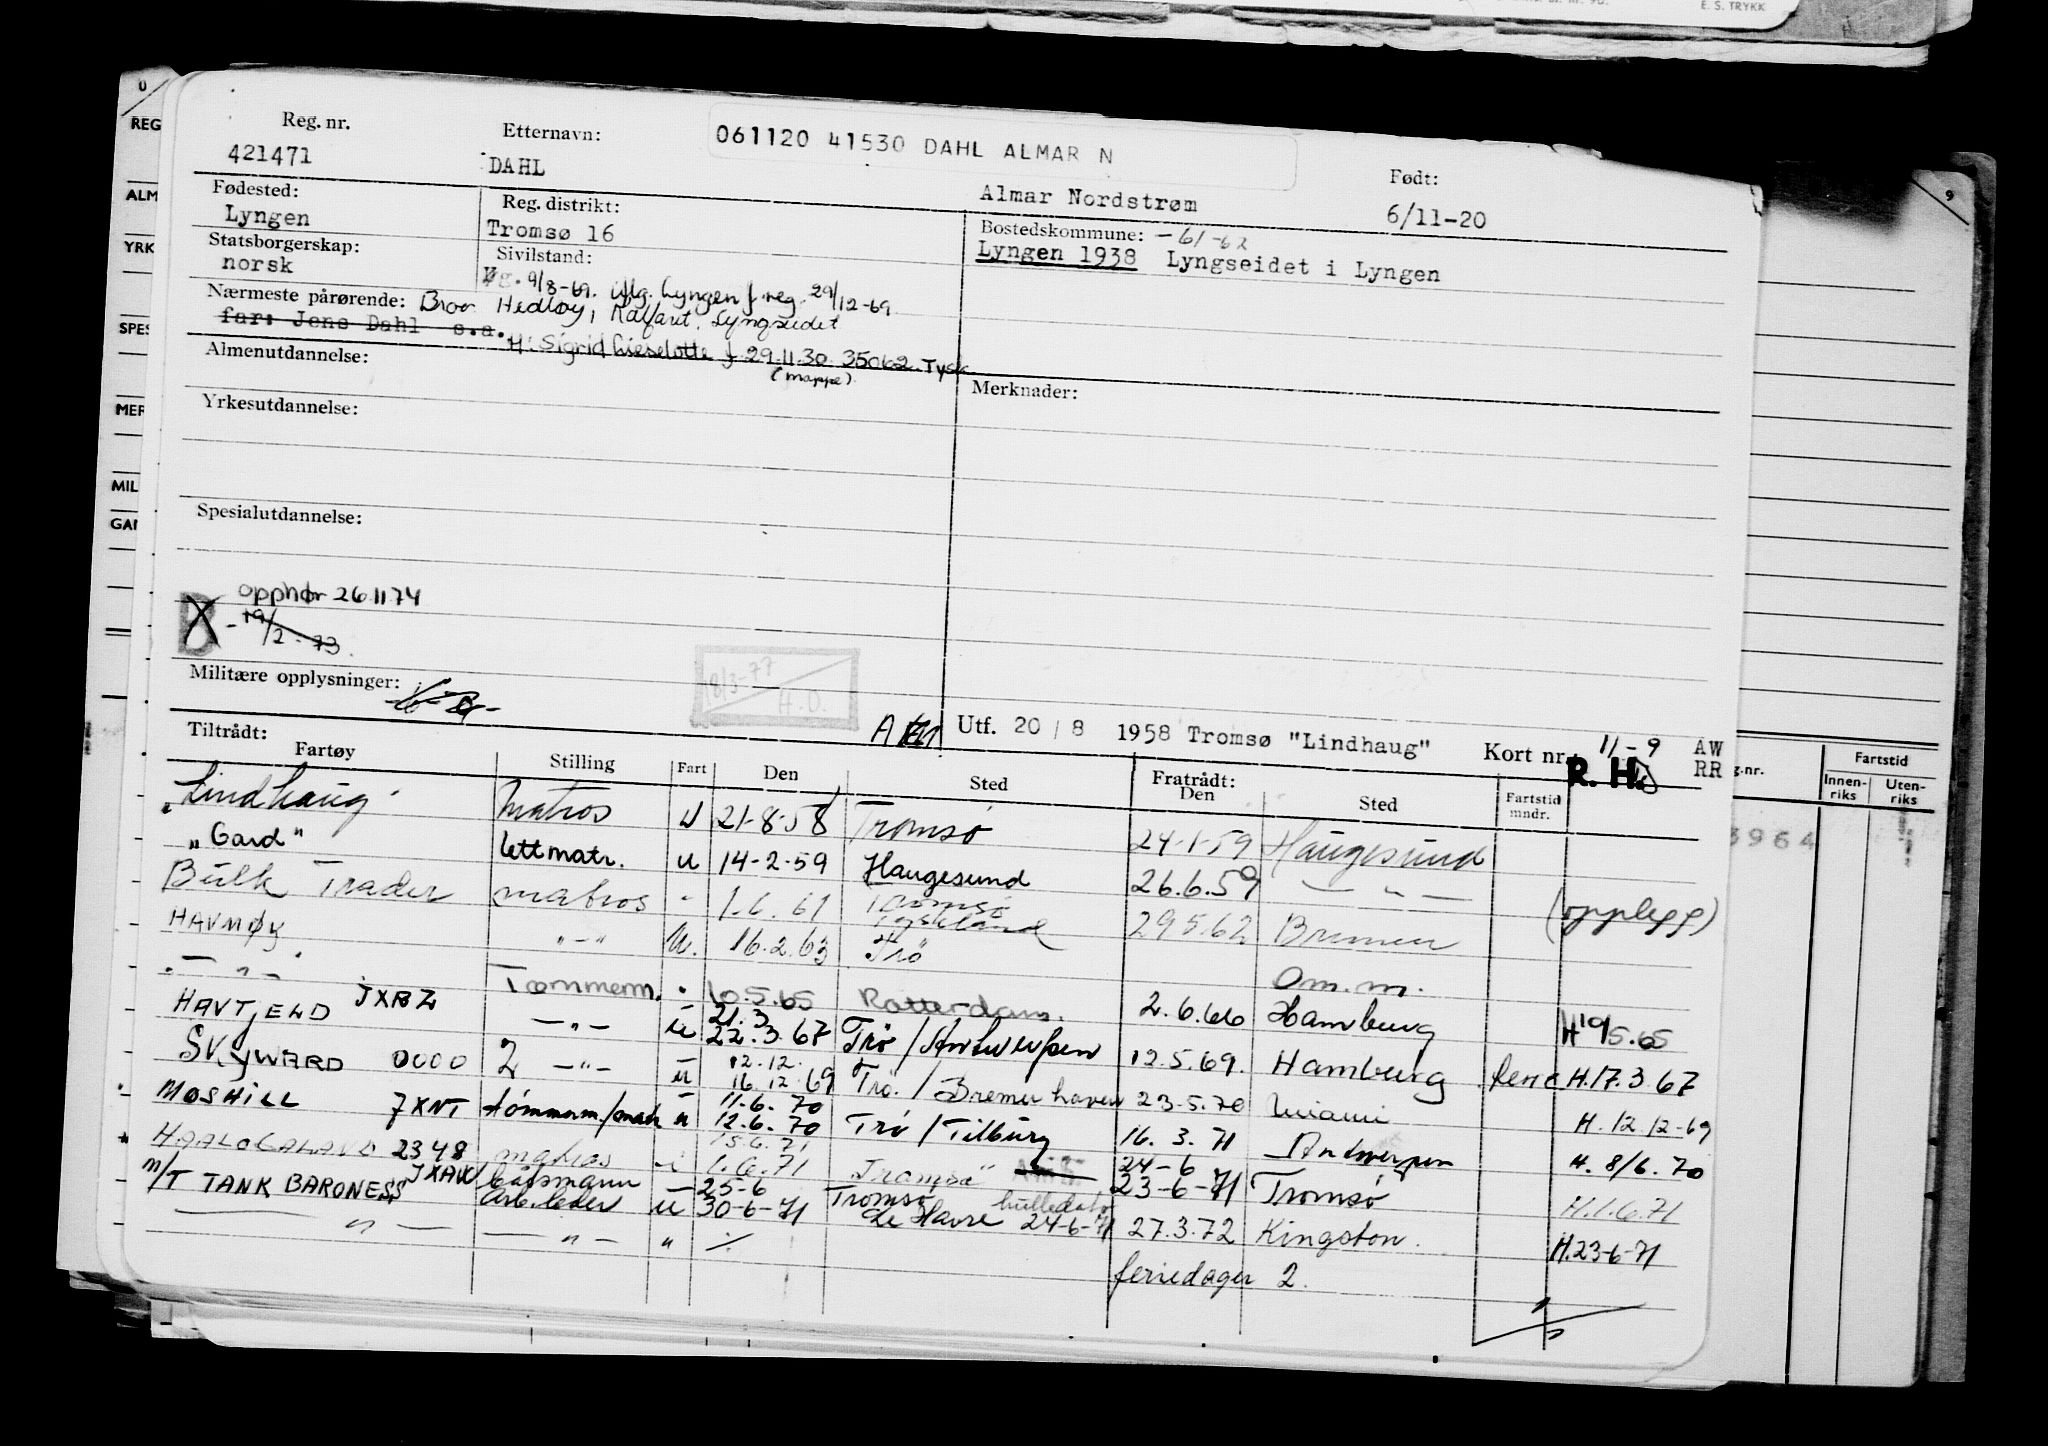 E. S. TRYKK
Reg. nr. Etternavn: 061120 41530 DAHL ALMAR N Født:
421471 DAHL Almar Nordstrøm 6/11-20
Fødested: Reg. distrikt: Bostedskommune: -61-62
Lyngen Tromsø 16 Lyngen 1938 Lyngseidet i Lyngen
Statsborgerskap: Sivilstand:
norsk g. 9/8-69. Lyngen f. reg. 29/12-69
Nærmeste pårørende: Bror Hedley, Kalfaret, Lyngseidet
far: Jens Dahl s.a.
H: Sigrid Lieselotte f. 29.11.30 35062 Tysk
(mappe).
Almenutdannelse: Merknader:
Yrkesutdannelse:
Spesialutdannelse:
opphør 26.11.74
B - 19/2-73.
Militære opplysninger:
18/3-77
H.O.
Utf. 20/8 1958 Tromsø "Lindhaug" Kort nr. 11-9 AW
R. H. RR
Tiltrådt: Fratrådt:
Fartøy Stilling Fart Den Sted Den Sted Fartstid mndr.
"Lindhaug" Matros U 21-8-58 Tromsø 24-1-59 Haugesund
"Gard" lettmatr. u 14-2-59 Haugesund 26.6.59 — " — (opplegg)
Bulk Trader matros " 1.6.61 Tromsø Tyskland 29.5.62 Bremen
HAVMØY " - " U. 16.2.63 Trö Om.m.
- " - Tømmerm. " 10.5.65 Rotterdam. 2.6.66 Hamburg H 10/5.65
HAVFJELD JXBZ — " — u 21.3 22.3.67 Trø / Antwerpen 12.5.69. Hamburg ferie H.17.3.67
SKYWARD 0000 2 — " — u 12.12. 16.12.69 Trø. / Bremerhaven 23.5.70 Miami H. 12.12-69
MOSHILL JXNT tømmerm./matr u 11-6.70 12.6.70 Trø / Tilbury 16.3.71 Antwerpen H. 8/6.70
HAALOGALAND 2348 matros u 15.6.71 1.6.71 Tromsö 24-6 23-6-71 Tromsø H.1.6.71
M/T TANK BARONESS JXAW båtsmann arb.leder u 25-6 30-6-71 Tromsø le Havre hulledato 24-6-71 27.3.72 Kingston. H.23-6-71
— " — — " — " ./. feriedager 2.
REG
ALM
YRK
SPES
MER
MIL
GAR
9
g.nr. Fartstid
Innen-riks Uten-riks
3964